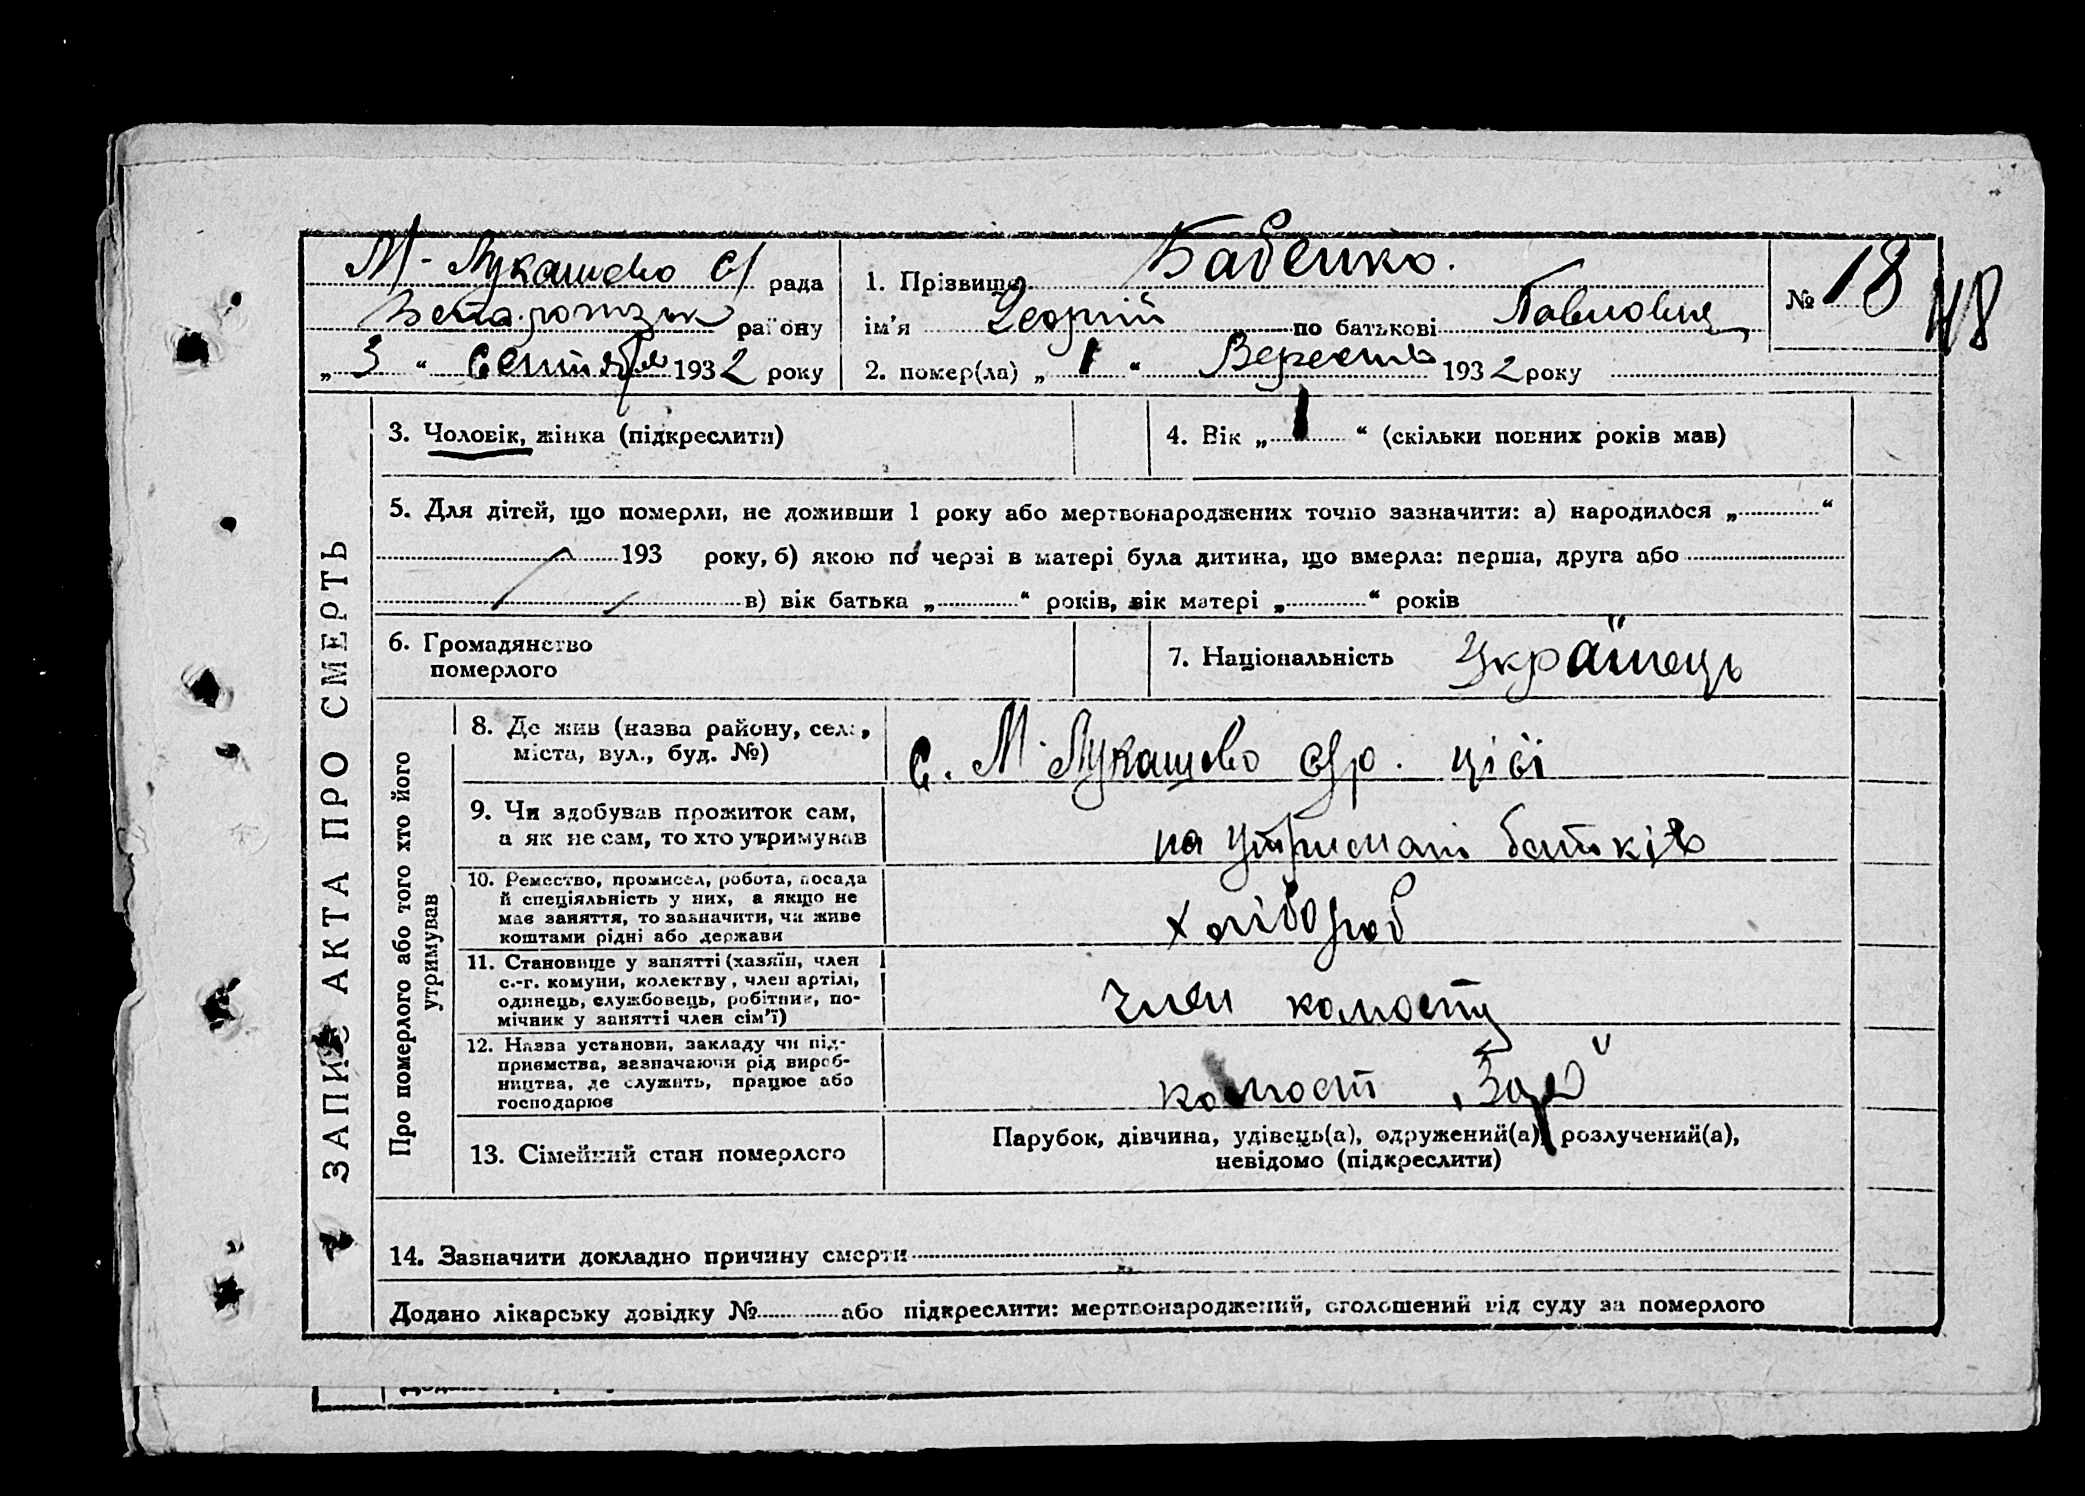 М-Лукашево С/ рада
району
„ 3 “ Сентября 1932 року
1. Прізвище Бабенко.
ім’я Георгій по батькові Павлович
2. помер(ла) „ 1 “ Вересня 1932 року
№ 18
48
ЗАПИС АКТА ПРО СМЕРТЬ
3. Чоловік, жінка (підкреслити)
4. Вік „ 1 “ (скільки повних років мав)
5. Для дітей, що померли, не доживши 1 року або мертвонароджених точно зазначити: а) народилося „ “
193 року, б) якою по черзі в матері була дитина, що вмерла: перша, друга або
в) вік батька „ “ років, вік матері „ “ років
6. Громадянство
померлого
7. Національність Українець
Про померлого або того хто його
утримував
8. Де жив (назва району, села,
міста, вул., буд. №)
с. М-Лукашево с/р. цієї
9. Чи здобував прожиток сам,
а як не сам, то хто утримував
на утримані батьків
10. Ремество, промисел, робота, посада
й спеціяльність у них, а якщо не
має заняття, то зазначити, чи живе
коштами рідні або держави
хлібороб
11. Становище у занятті (хазяїн, член
с.-г. комуни, колектву, член артілі,
одинець, службовець, робітник, по-
мічник у занятті член сім’ї)
член колгоспу
12. Назва установи, закладу чи під-
приємства, зазначаючи рід вироб-
ництва, де служить, працює або
господарює
колгосп „Заря“
13. Сімейний стан померлого
Парубок, дівчина, удівець(а), одружений(а), розлучений(а),
невідомо (підкреслити)
14. Зазначити докладно причину смерти
Додано лікарську довідку № або підкреслити: мертвонароджений, оголошений від суду за померлого